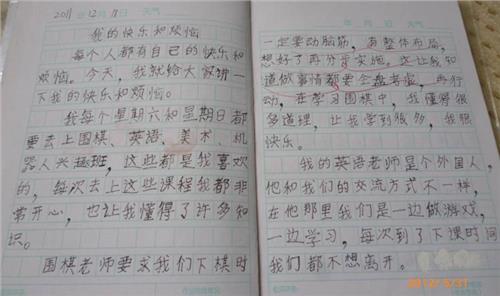 2011年12月11日 天气
我的快乐和烦恼
每个人都有自己的快乐和
烦恼。今天,我就给大家讲一
下我的快乐和烦恼。
我每个星期六和星期日都
要去上围棋、英语、美术、机
器人兴趣班,这些都是我喜欢
的,每次去上这些课程我都非
常开心,也让我懂得了许多知
识。
围棋老师要求我们下棋时
年 月 日 天气
一定要动脑筋,有整体布局,
想好了再分步实施。这让我知
道做事情都要全盘考虑,再行
动,在学习围棋中,我懂得很
多道理,让我学到很多,我很
快乐。
我的英语老师是个外国人,
他和我们的交流方式不一样,
在他那里我们是一边做游戏,
一边学习,每次到了下课时间
我们都不想离开。
2012/5/31